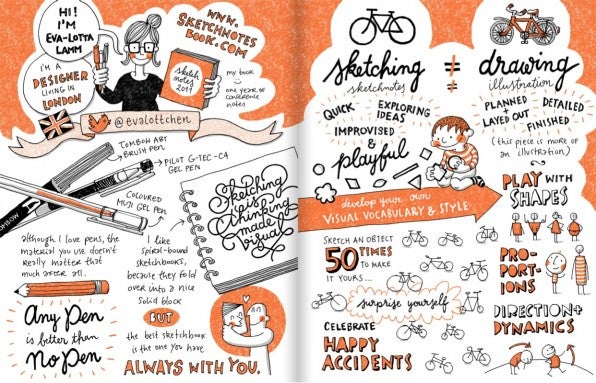 HI!
I'M
EVA-LOTTA
LAMM
I'M A
DESIGNER
LIVING IN
LONDON
WWW.
SKETCHNOTES
BOOK.COM
sketch
notes
2011
my book
one year of
conference
notes
@evalottchen
TOMBOW ABT
BRUSH PEN
PILOT G-TEC-C4
GEL PEN
COLOURED
MUJI GEL PEN
TOMBOW
although I love pens, the
material you use doesn't
really matter that
much after all.
Any Pen
is better than
No Pen
I like
spiral-bound
sketchbooks,
because they fold
over into a nice
solid block
BUT
the best sketchbook
is the one you have
ALWAYS WITH YOU.
Sketching
is
thinking
made
visual
sketching
sketchnotes
≠
drawing
illustration
QUICK
EXPLORING
IDEAS
IMPROVISED
&
playful
PLANNED
LAYED OUT
DETAILED
FINISHED
(this piece is more of
an illustration)
develop your own
VISUAL VOCABULARY & STYLE
SKETCH AN OBJECT
50 TIMES
TO MAKE
IT YOURS...
surprise yourself
CELEBRATE
HAPPY
ACCIDENTS
PLAY WITH
SHAPES
PRO-
PORT-
IONS
DIRECTION+
DYNAMICS